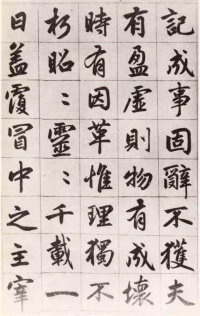 記成事固辭不獲夫
有盈虛則物有成壞
時有因革惟理獨不
朽昭〻靈〻千載一
日蓋覆冒中之主宰